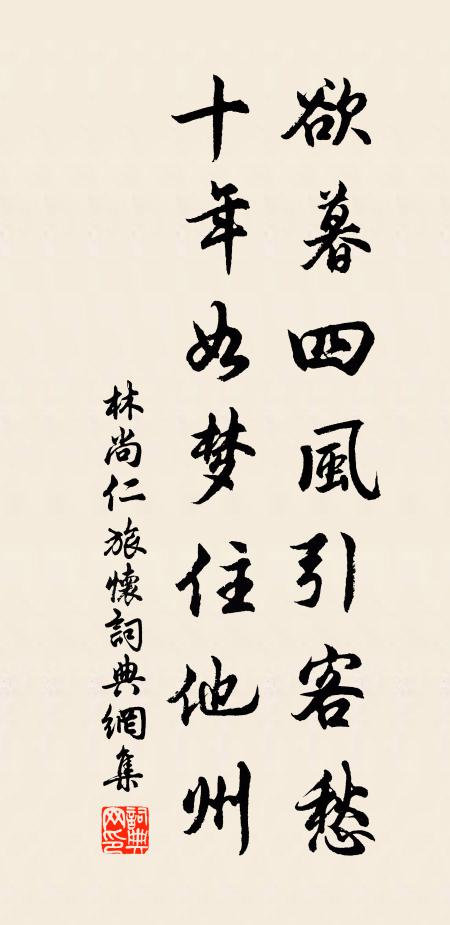 欲暮四風引客愁
十年如梦住他州
林尚仁旅懷詞典網集
詞典网印